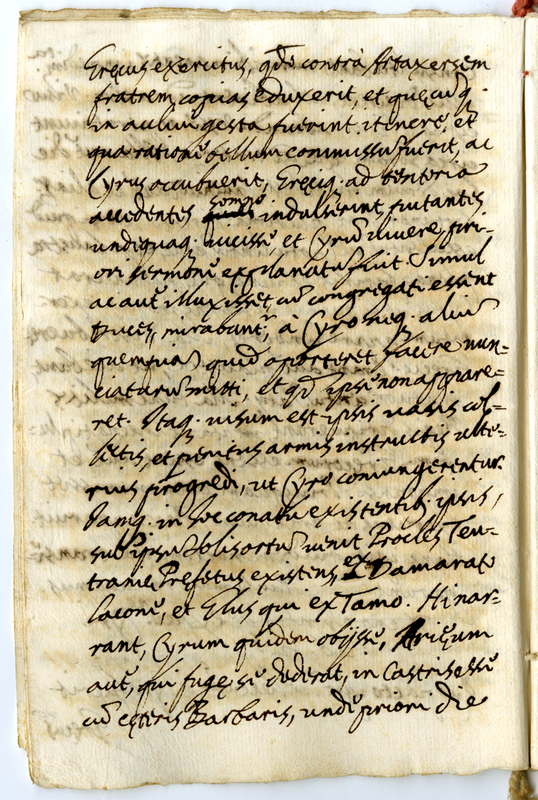 Grecus exercitus, qdo contrà Artaxersem
fratrem copias eduxerit, et quęcūq.
in gesta fuerint itenere, et
qua rationē bellum commissū fuerit, ac
Cyrus occubuerit, Gręciq. ad tentoria
accedentes somno indulserint, putantes
undiquaq. uicisse, et Cyrū uiuere, pri-
ori sermonē explanatū fuit. Simul
ac autē illuxisset, cū congregati essent
Duces, mirabantr, à Cyro neq. aliū
quempiā quid oporteret facere nun-
ciaturū mitti, et qd ipse non appare-
ret. Itaq. uisum est ipsis uasis col-
lectis, et penitus armis instructis ulte-
rius progredi, ut Cyro coniungerentur.
Iamq. in hoc conatu existentib. ipsis,
sub ipsū Solis ortū uenit Procles Teu-
tranię Prefetus existens ex Damarato
Laconē, et Glus qui ex Tamo. Hi nar-
rant, Cyrum quidem obijsse, Arięum
autē, qui fugę se dederat, in Castris esse
cū cęteris Barbaris, undè priori die